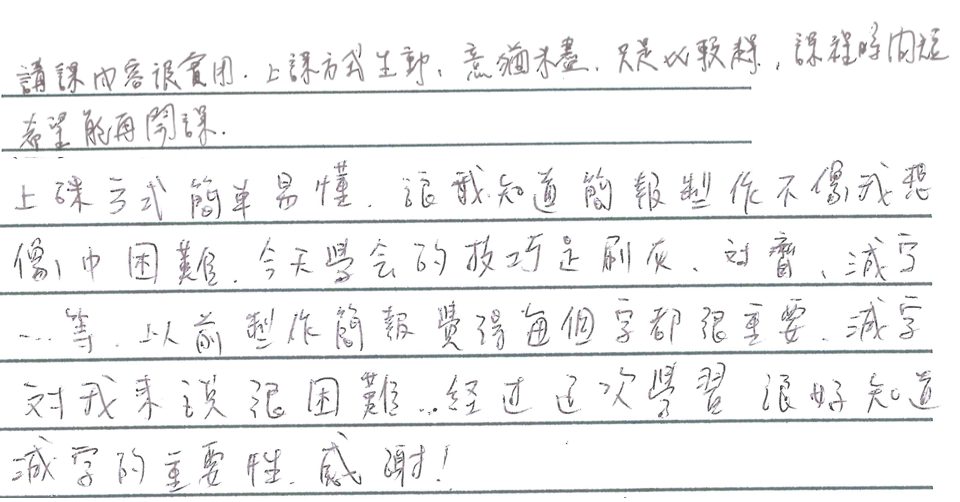 講課內容很實用．上課方式生動，意猶未盡．只是比較趕，課程時間短
希望能再開課．
上課方式簡單易懂．讓我知道簡報製作不像我想
像中困難．今天學会的技巧是刷灰、对齊、減字
…等．以前製作簡報覺得每個字都很重要．減字
对我來说很困難…经过这次學習 很好知道
減字的重要性．感謝！